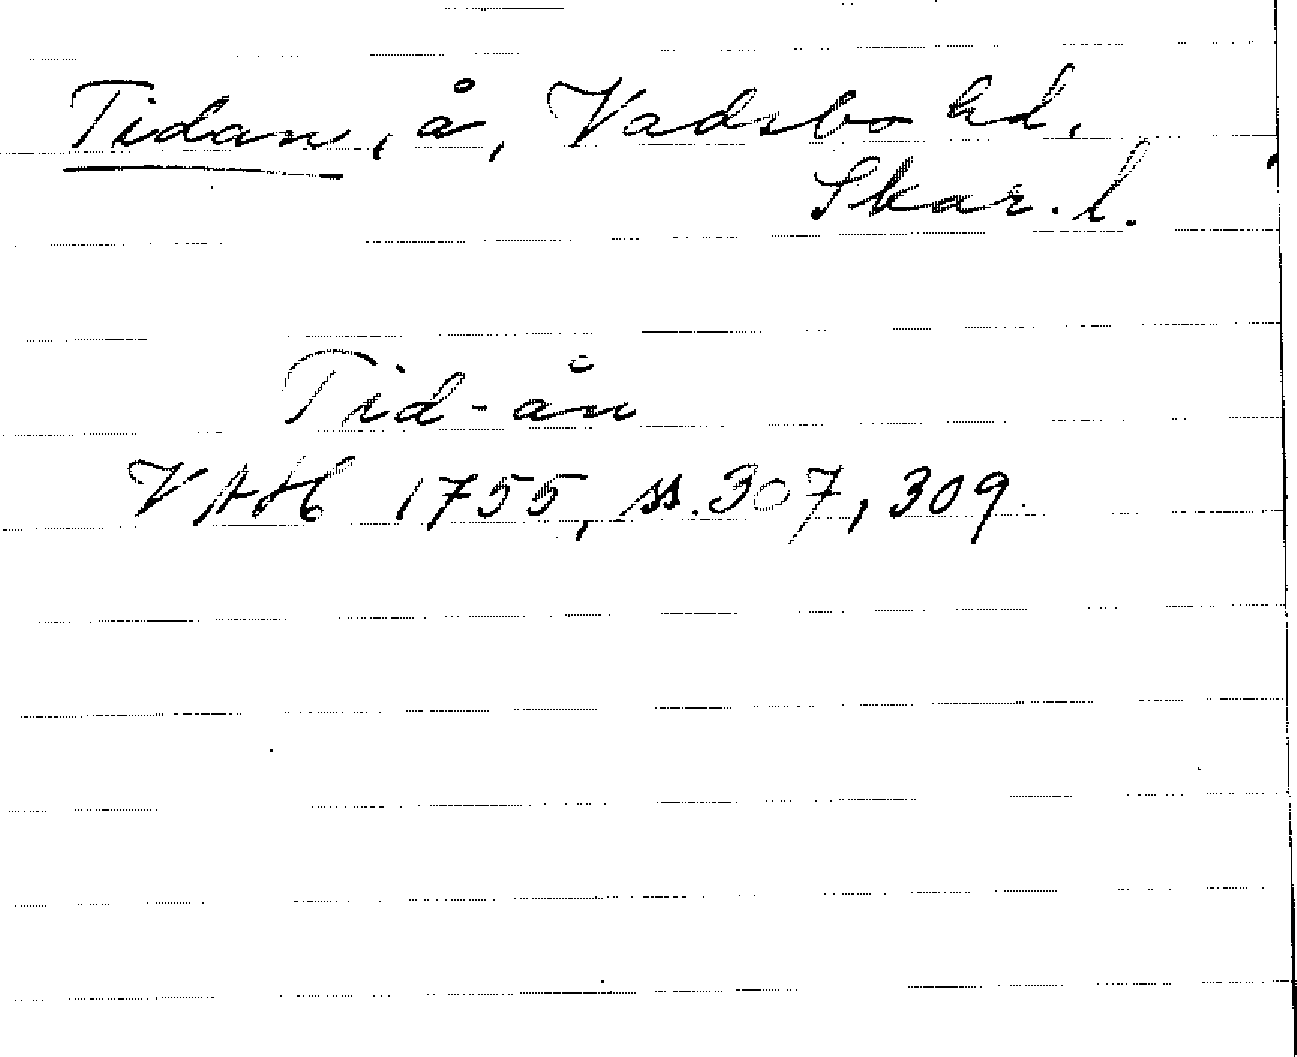 Tidan, å, Vadsbo hd,
Skar. l.
Tid-ån
VAH 1755, ss. 307, 309.